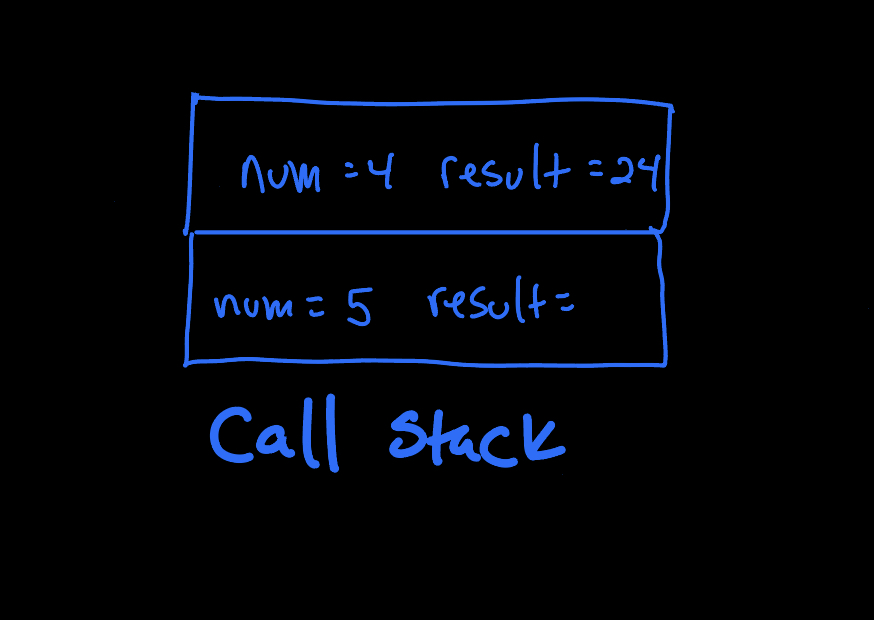 num = 4 result = 24
num = 5 result =
Call stack